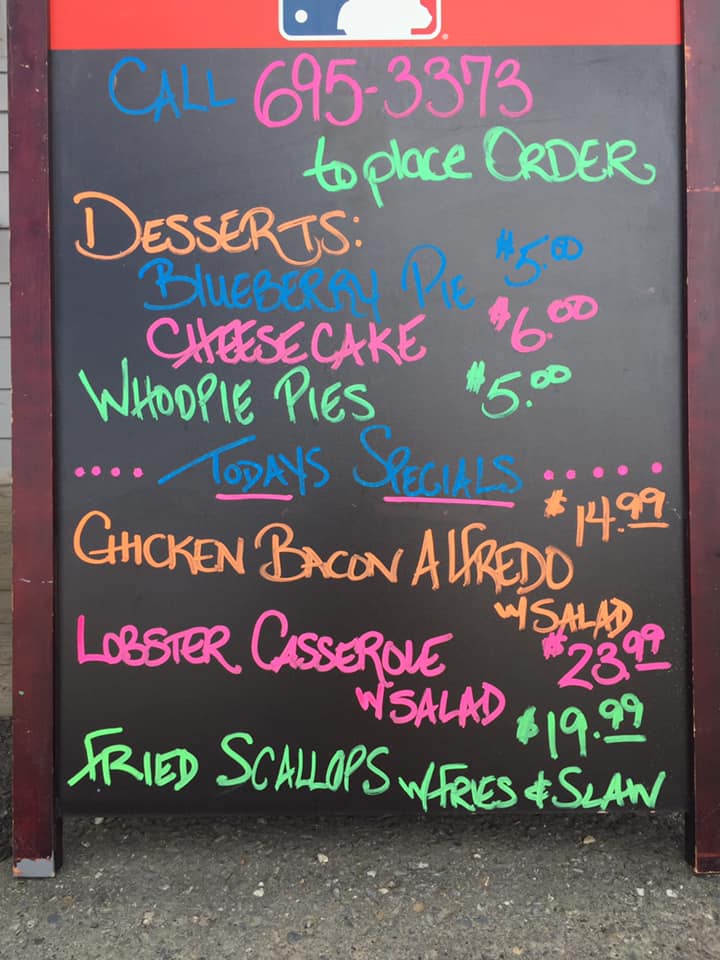 CALL 695-3373
to place ORDER
DESSERTS:
BLUEBERRY PIE $5.00
CHEESECAKE $6.00
WHOOPIE PIES $5.00
.... TODAYS SPECIALS .....
$14.99
CHICKEN BACON ALFREDO
W/SALAD
LOBSTER CASSEROLE $23.99
W/SALAD
$19.99
FRIED SCALLOPS W/FRIES & SLAW